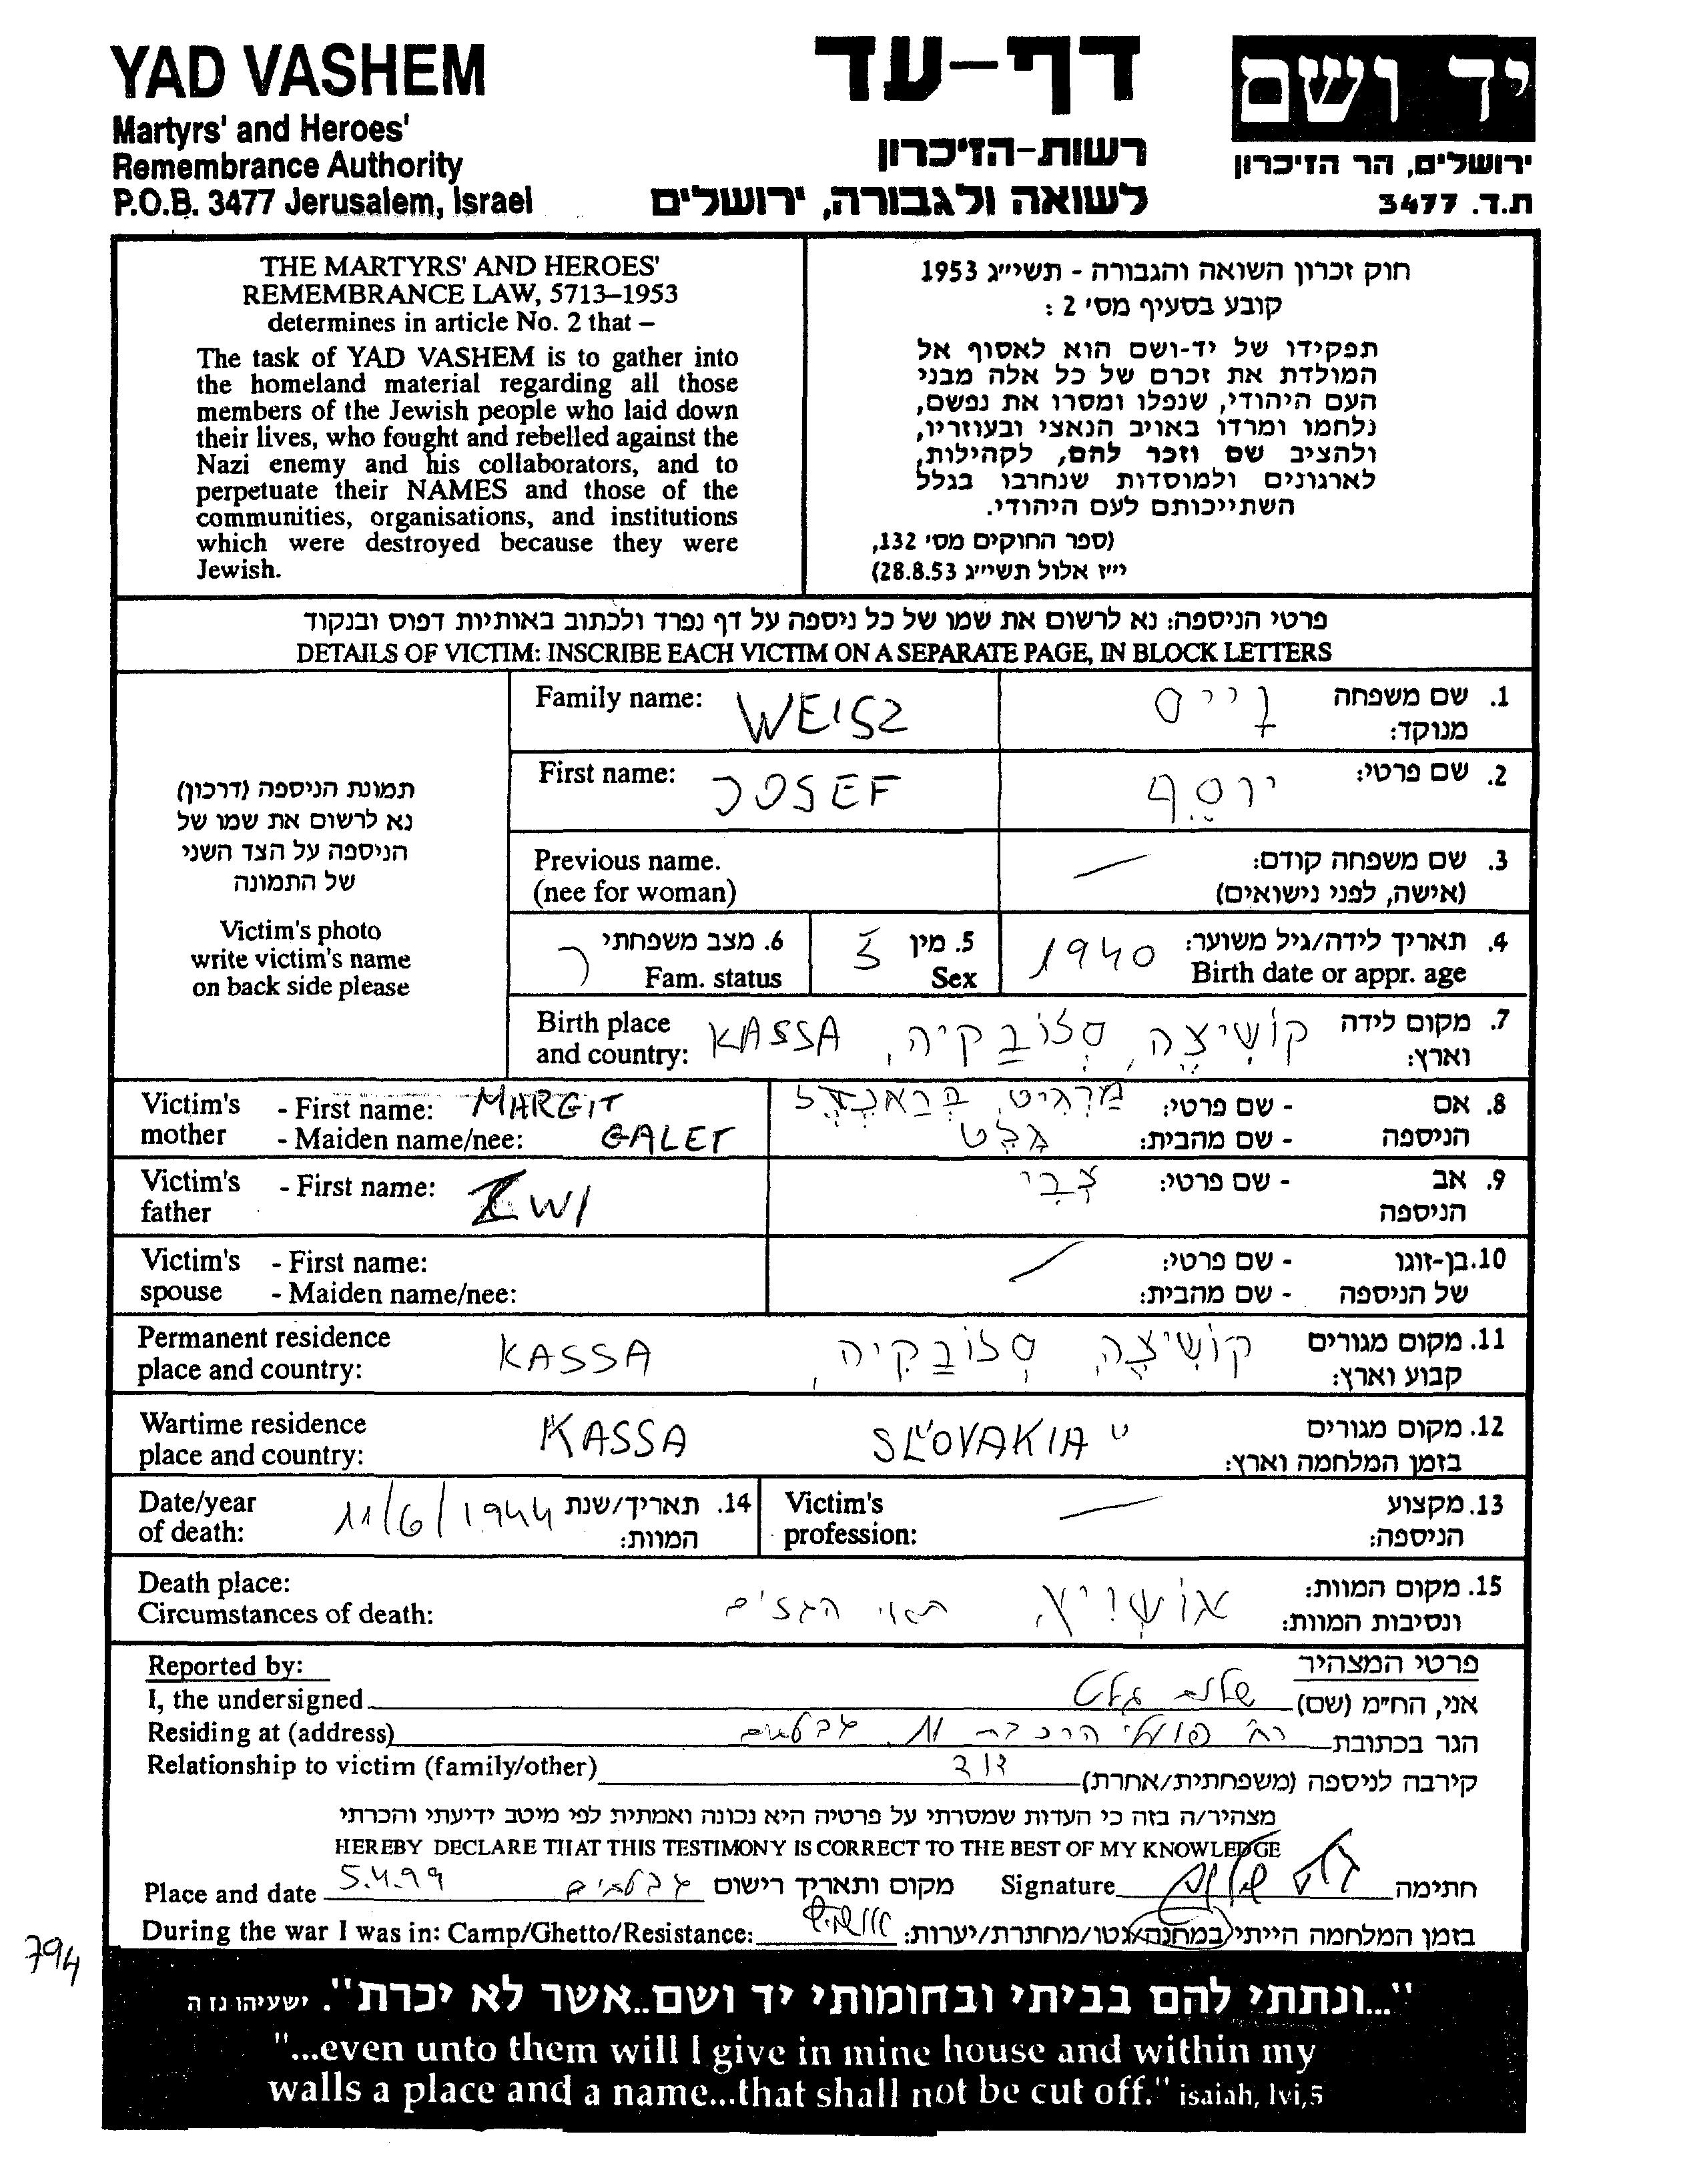 YAD VASHEM
Martyrs' and Heroes'
Remembrance Authority
P.O.B. 3477 Jerusalem, Israel
דף-עד
רשות-הזיכרון
לשואה ולגבורה, ירושלים
יד ושם
ירושלים, הר הזיכרון
ת.ד. 3477
THE MARTYRS' AND HEROES'
REMEMBRANCE LAW, 5713–1953
determines in article No. 2 that –
The task of YAD VASHEM is to gather into
the homeland material regarding all those
members of the Jewish people who laid down
their lives, who fought and rebelled against the
Nazi enemy and his collaborators, and to
perpetuate their NAMES and those of the
communities, organisations, and institutions
which were destroyed because they were
Jewish.
חוק זכרון השואה והגבורה - תשי״ג 1953
קובע בסעיף מס' 2 :
תפקידו של יד-ושם הוא לאסוף אל
המולדת את זכרם של כל אלה מבני
העם היהודי, שנפלו ומסרו את נפשם,
נלחמו ומרדו באויב הנאצי ובעוזריו,
ולהציב שם וזכר להם, לקהילות,
לארגונים ולמוסדות שנחרבו בגלל
השתייכותם לעם היהודי.
(ספר החוקים מס' 132,
י״ז אלול תשי״ג 28.8.53)
פרטי הניספה: נא לרשום את שמו של כל ניספה על דף נפרד ולכתוב באותיות דפוס ובנקוד
DETAILS OF VICTIM: INSCRIBE EACH VICTIM ON A SEPARATE PAGE, IN BLOCK LETTERS
תמונת הניספה (דרכון)
נא לרשום את שמו של
הניספה על הצד השני
של התמונה
Victim's photo
write victim's name
on back side please
Family name: WEISZ וייס 1. שם משפחה
מנוקד:
First name: JOSEF יוסף 2. שם פרטי:
Previous name. 3. שם משפחה קודם:
(nee for woman) (אישה, לפני נישואים)
6. מצב משפחתי ר 5. מין ז 1940 4. תאריך לידה/גיל משוער:
Fam. status Sex Birth date or appr. age
Birth place KASSA קושיצה, סלובקיה, 7. מקום לידה
and country: וארץ:
Victim's - First name: MARGIT מרגיט, - שם פרטי: 8. אם
mother - Maiden name/nee: GALET גלט - שם מהבית: הניספה
Victim's - First name: ZWI צבי - שם פרטי: 9. אב
father הניספה
Victim's - First name: - שם פרטי: 10. בן-זוגו
spouse - Maiden name/nee: - שם מהבית: של הניספה
Permanent residence KASSA קושיצה, סלובקיה, 11. מקום מגורים
place and country: קבוע וארץ:
Wartime residence KASSA SLOVAKIA 12. מקום מגורים
place and country: בזמן המלחמה וארץ:
Date/year 11/6/1944 14. תאריך/שנת Victim's 13. מקצוע
of death: המוות: profession: הניספה:
Death place: אושויץ 15. מקום המוות:
Circumstances of death: תאי הגזים ונסיבות המוות:
Reported by: פרטי המצהיר
I, the undersigned שלום גלט אני, הח״מ (שם)
Residing at (address) 11 גבעתיים הגר בכתובת
Relationship to victim (family/other) דוד קירבה לניספה (משפחתית/אחרת)
מצהיר/ה בזה כי העדות שמסרתי על פרטיה היא נכונה ואמתית לפי מיטב ידיעתי והכרתי
HEREBY DECLARE THAT THIS TESTIMONY IS CORRECT TO THE BEST OF MY KNOWLEDGE
Place and date 5.4.99 גבעתיים מקום ותאריך רישום Signature גלט שלום חתימה
During the war I was in: Camp/Ghetto/Resistance: אושויץ בזמן המלחמה הייתי במחנה/גטו/מחתרת/יערות:
794
"...ונתתי להם בביתי ובחומותי יד ושם..אשר לא יכרת". ישעיהו נו ה
"...even unto them will I give in mine house and within my
walls a place and a name...that shall not be cut off." isaiah, lvi,5